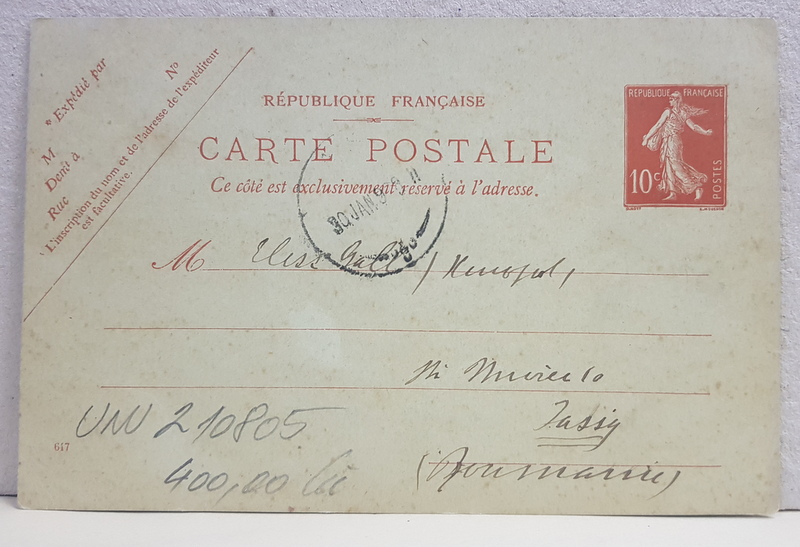 * Expédié par
No
M
Demt à
Rue
L'inscription du nom et de l'adresse de l'expéditeur
est facultative.
RÉPUBLIQUE FRANÇAISE
CARTE POSTALE
Ce côté est exclusivement réservé à l'adresse.
RÉPUBLIQUE FRANÇAISE
10 c
POSTES
JAN 08
M
Xenopol,
Jassy
(Roumanie)
UNU 210805
400,00 lei
617